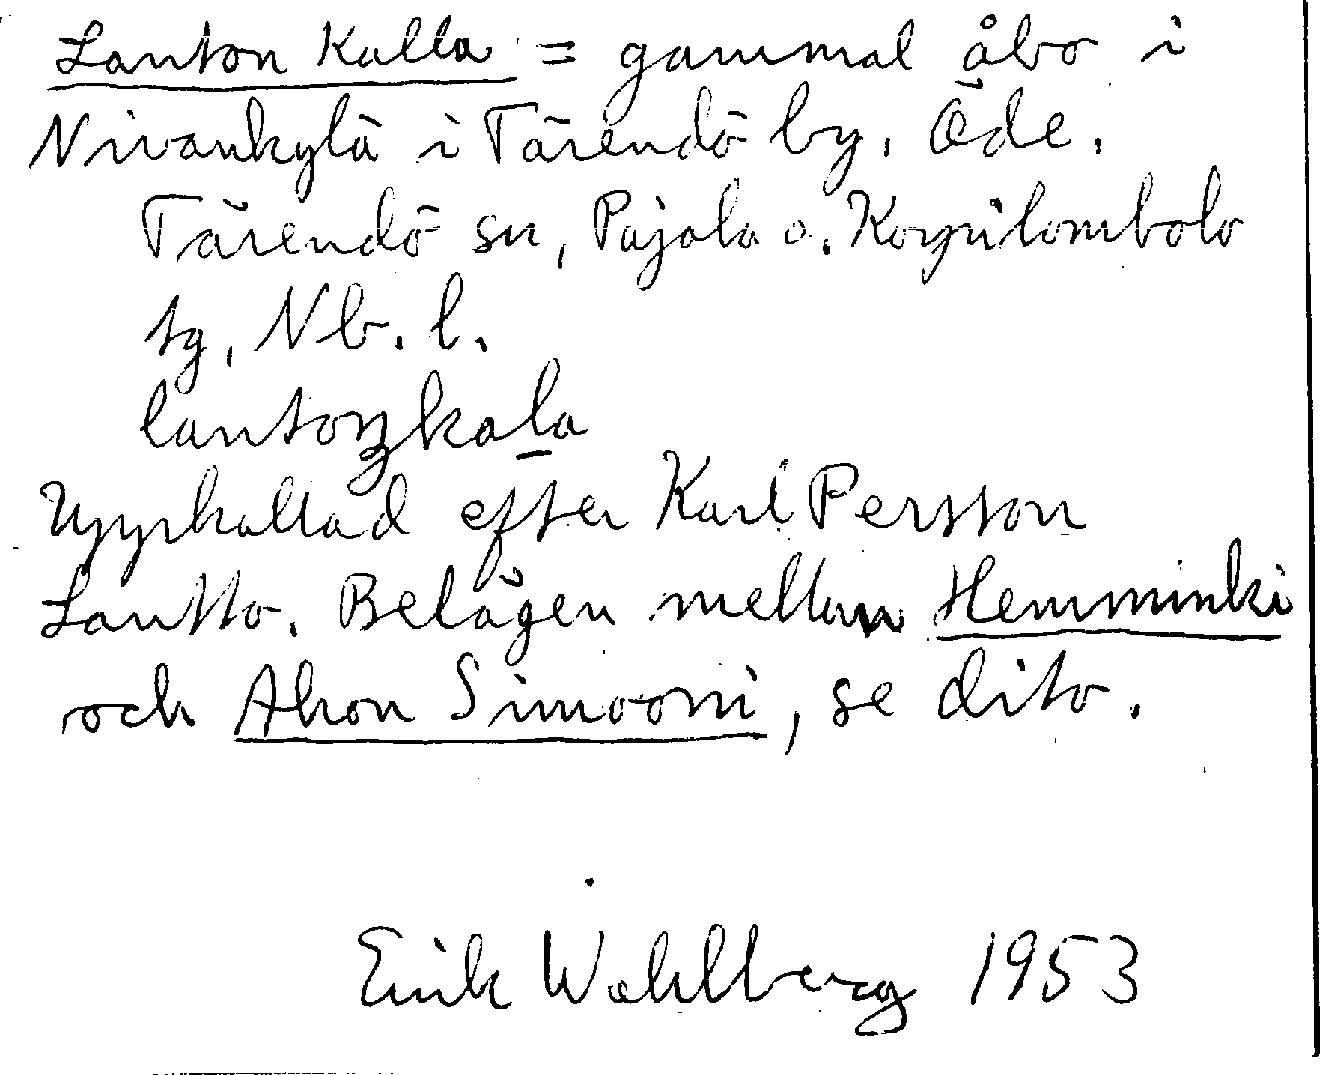 Lanton Kalla = gammal åbo i
Nivankylä i Tärendö by. Öde.
Tärendö sn, Pajala o. Korpilombolo
tg, Nb. l.
lantoŋkala
Uppkallad efter Karl Persson
Lantto. Belägen mellan Hemminki
och Ahon Simooni, se dito.
Erik Wahlberg 1953